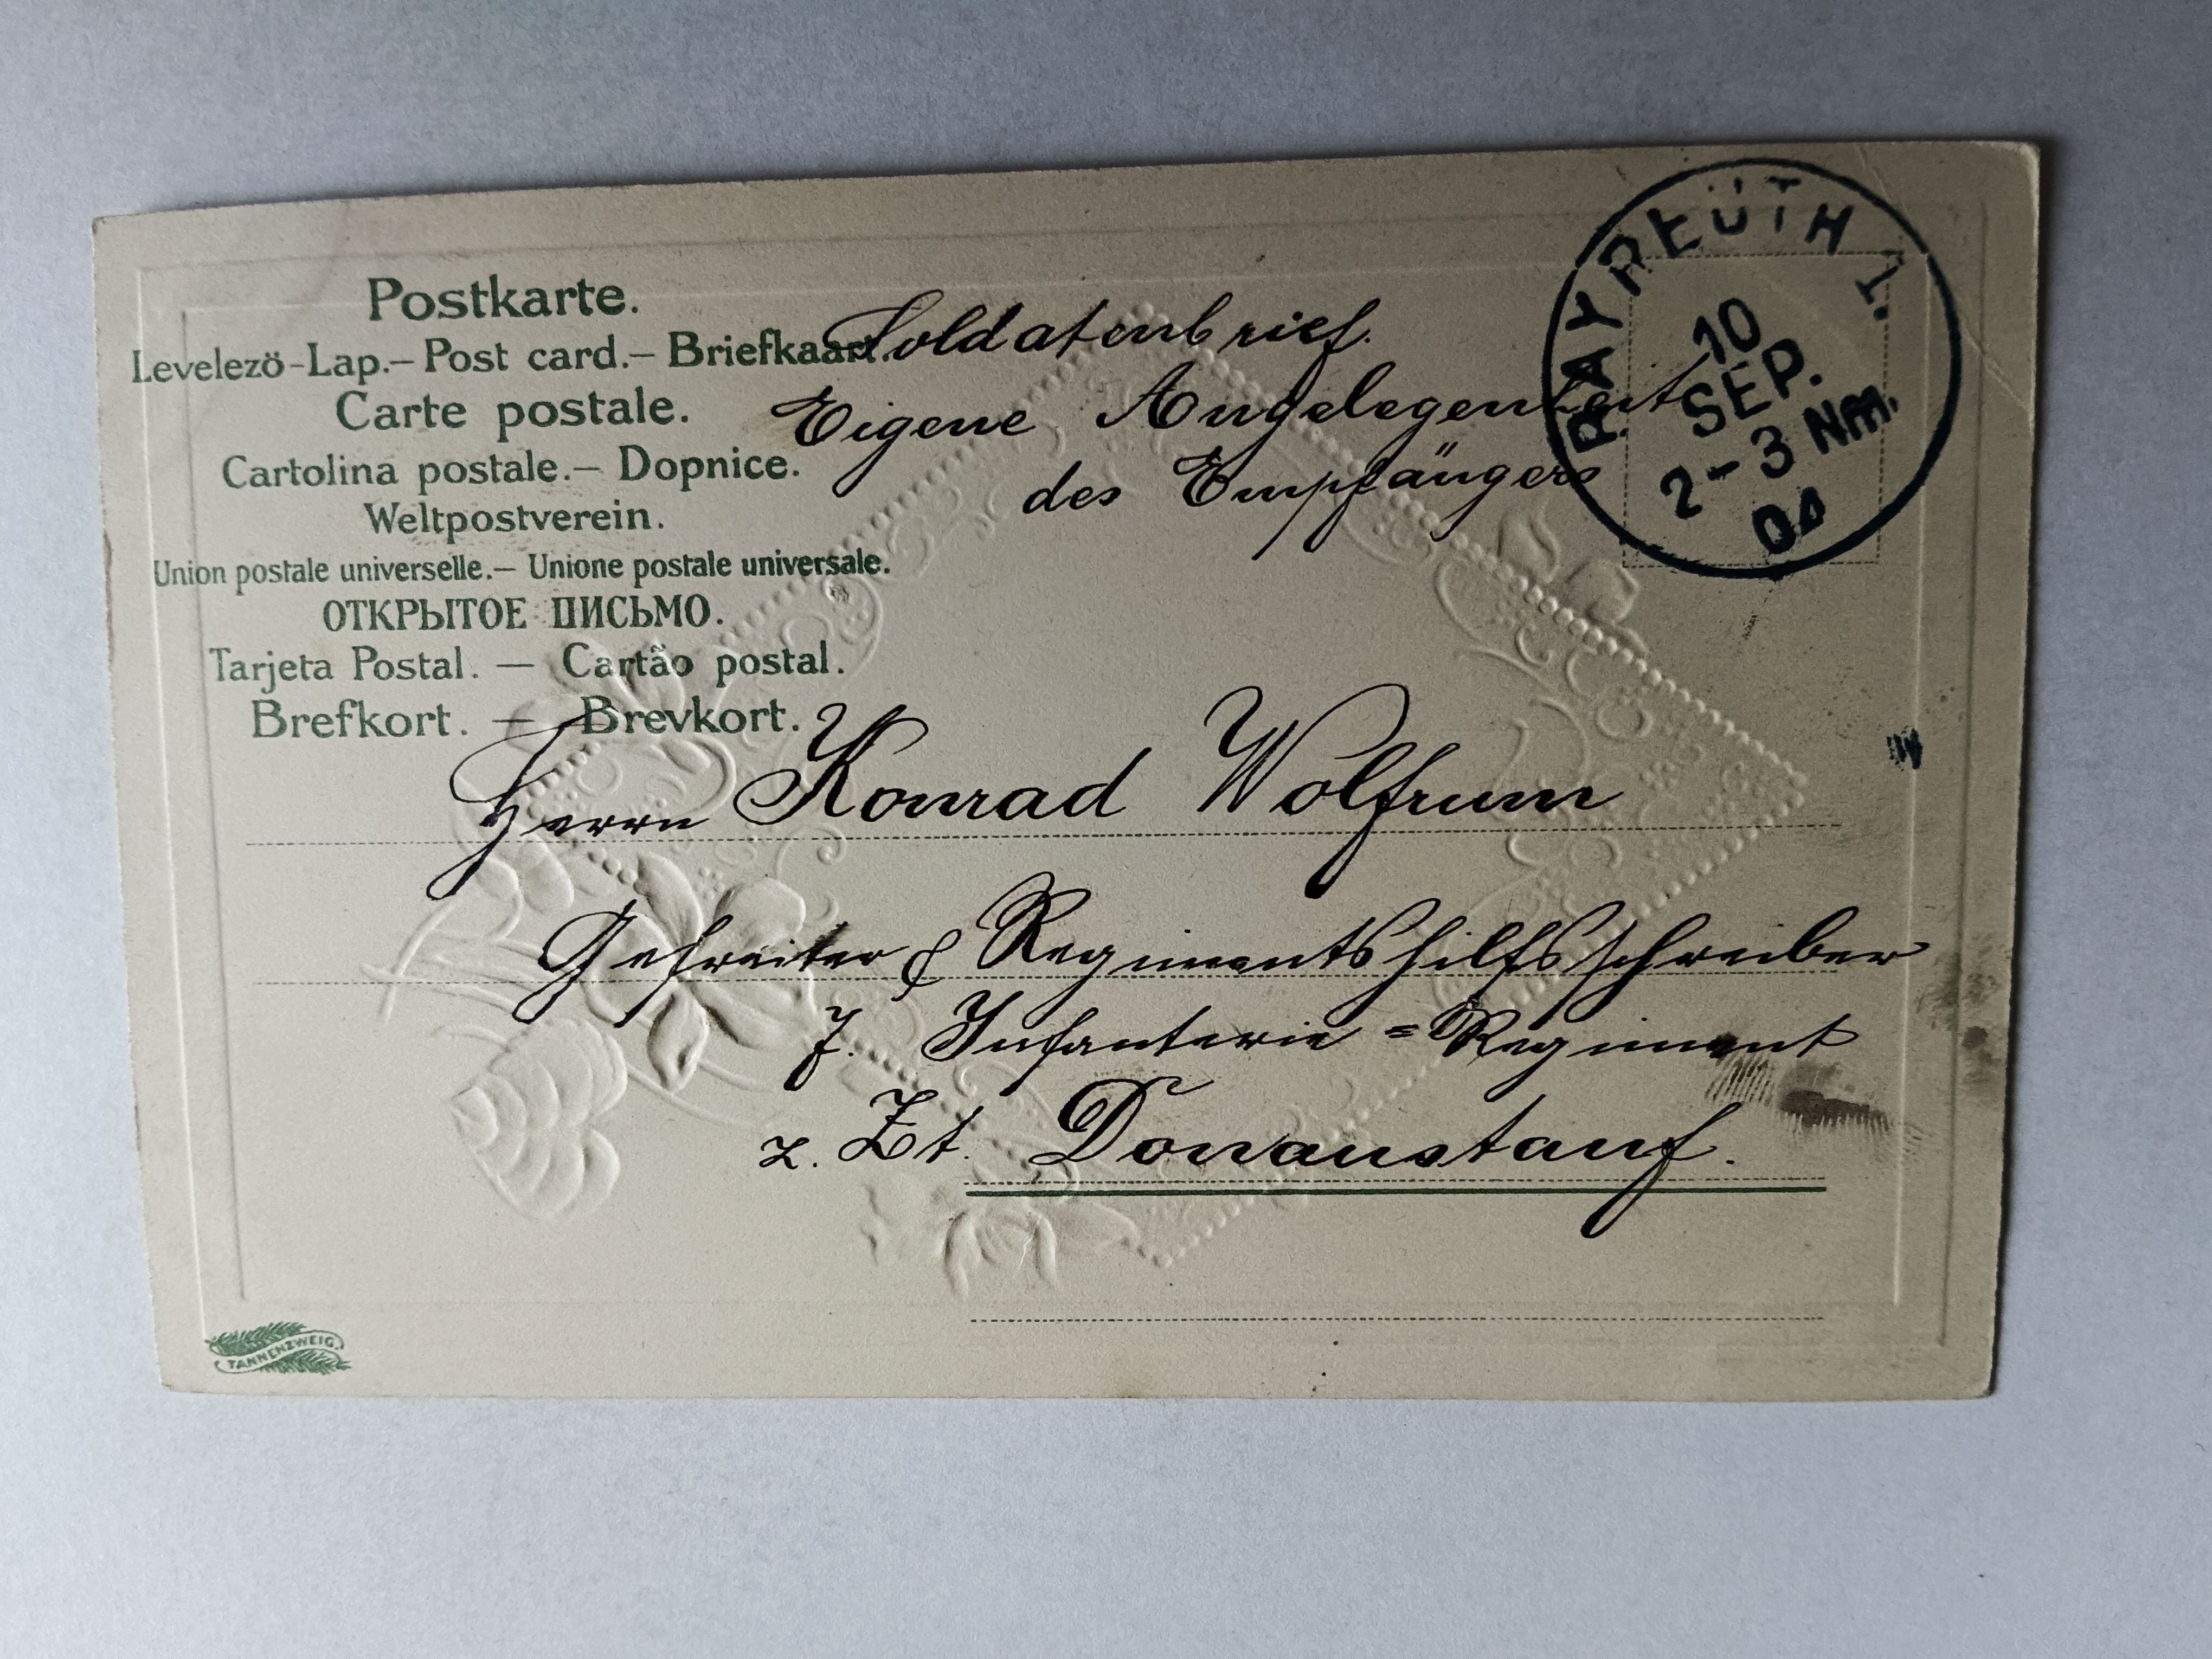 Postkarte.
Levelező-Lap.– Post card.– Briefkaart.
Carte postale.
Cartolina postale.– Dopnice.
Weltpostverein.
Union postale universelle.– Unione postale universale.
ОТКРЫТОЕ ПИСЬМО.
Tarjeta Postal. — Cartão postal.
Brefkort. — Brevkort.
Soldatenbrief.
Eigene Angelegenheit
des Empfängers
BAYREUTH 1.
10
SEP.
2-3 Nm.
04
Herrn Konrad Wolfrum
Gefreiter & Regimentshilfsschreiber
7. Infanterie=Regiment
z. Zt. Donaustauf.
TANNENZWEIG.